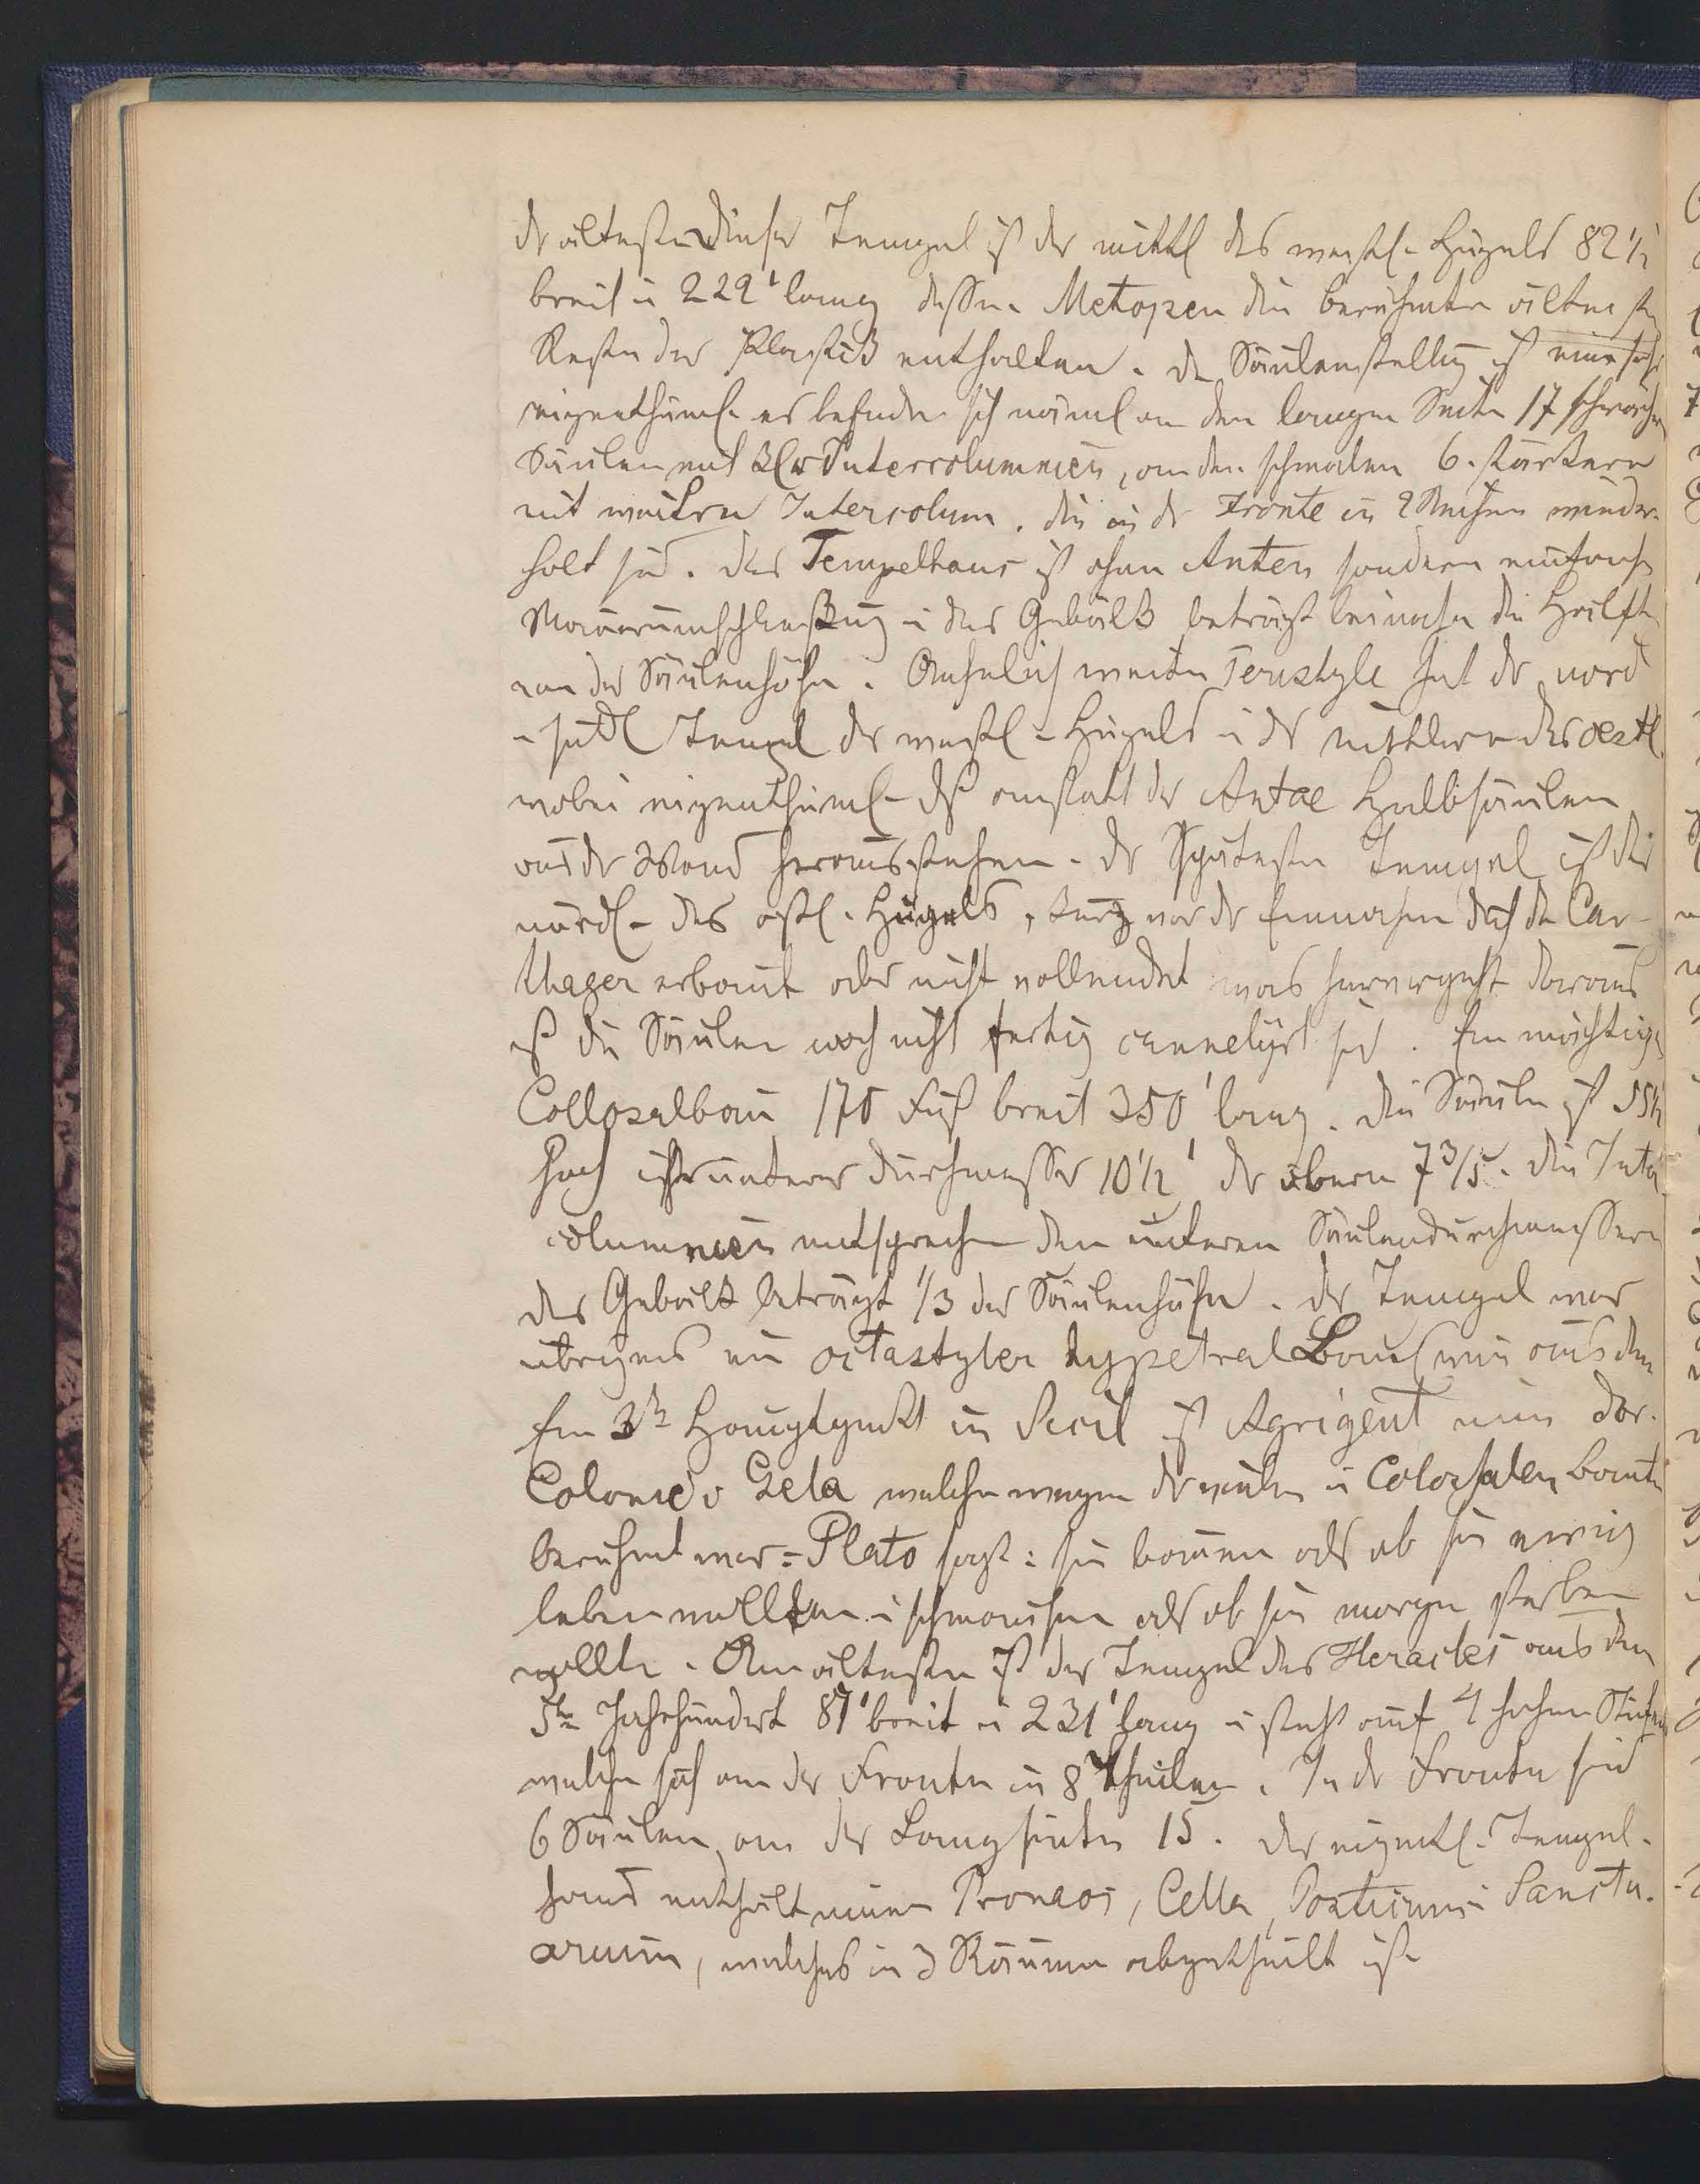 der älteste dieser Tempel ist der mittl des westl. Hügels 82½'
breit u 222' lang dessen Metopen die berühmten ältesten
Reste der Plastik enthalten. Die Säulenstellug ist eine sehr
eigenthüml. es befinden sich näml an den langen Seiten 17 schwache
Säulen mit kl Intercolumnien, an den schmalen 6. stärkere
mit weitern Intercolum. die in der Fronte in 2 Reihen wieder-
holt sind. Das Tempelhaus ist ohne Anten sondern einfache
Mauerumschließug u das Gebälk beträgt beinahe die Hälfte
von der Säulenhöhe. Aehnlich weite Peristyle hat der nord
u südl Tempel des westl. Hügels u der mittlere des oestl
wobei eigenthüml. daß anstatt der Antae Halbsäulen
aus der Wand herausstehen. Der späteste Tempel ist der
nördl. des östl. Hügels, kurz vor der Einnahme durch die Car-
thager erbaut oder nicht vollendet was hervorgeht daraus
daß die Säulen noch nicht fertig cannelirt sind. Ein mächtiger
Collosalbau 170 Fuß breit 350' lang. Die Säule ist 55½
hoch ihr unterer Durchmesser 10½' der obere 7 3/5. Die Inter
columnien entsprechen den unteren Säulendurchmessern
das Gebälk beträgt 1/3 der Säulenhöhe. Der Tempel war
übrigens ein octastyler hypetral Bau wie aus dem
Ein 3ter Hauptpunkt in Sicil ist Agrigent eine dor.
Colonie v Gela welche wegen der vielen u Colossalen Baute
berühmt war = Plato sagt: sie bauen als ob sie ewig
leben wollten u schmausen als ob sie morgen sterben
wollte. Am ältesten ist der Tempel des Heracles aus dem
5ten Jahrhundert 87' breit u 231' lang u steht auf 4 hohen Stufen
welche sich an der Fronte in 8 theilen. In der Fronte sind
6 Säulen, an der Langseite 15. Das eigentl. Tempel-
haus enthält einen Pronaos, Cella, Posticum u Sanctu-
arium, welches in 3 Räume abgetheilt ist